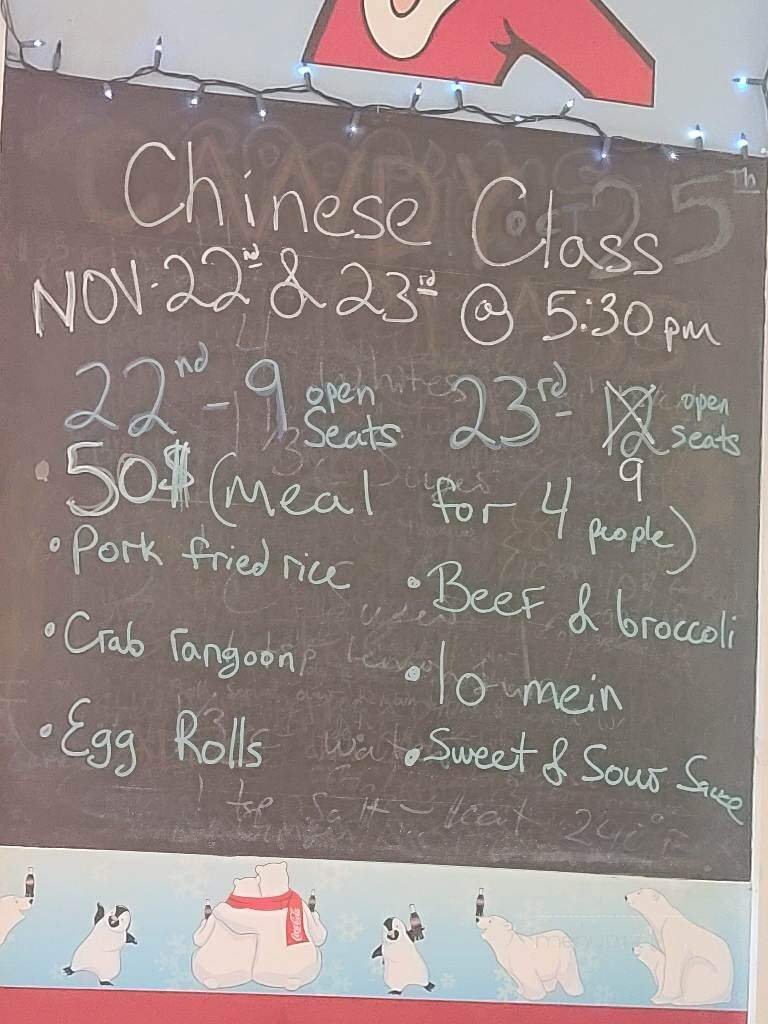 Chinese Class
NOV. 22nd & 23rd @ 5:30 pm
22nd - 9 open seats 23rd 12 open seats
9
50$ (meal for 4 people)
• Pork fried rice
• Beef & broccoli
• Crab rangoon
• lo mein
• Egg Rolls
• Sweet & Sour Sauce
25th
1 tsp Salt - heat 240°F
Coca-Cola